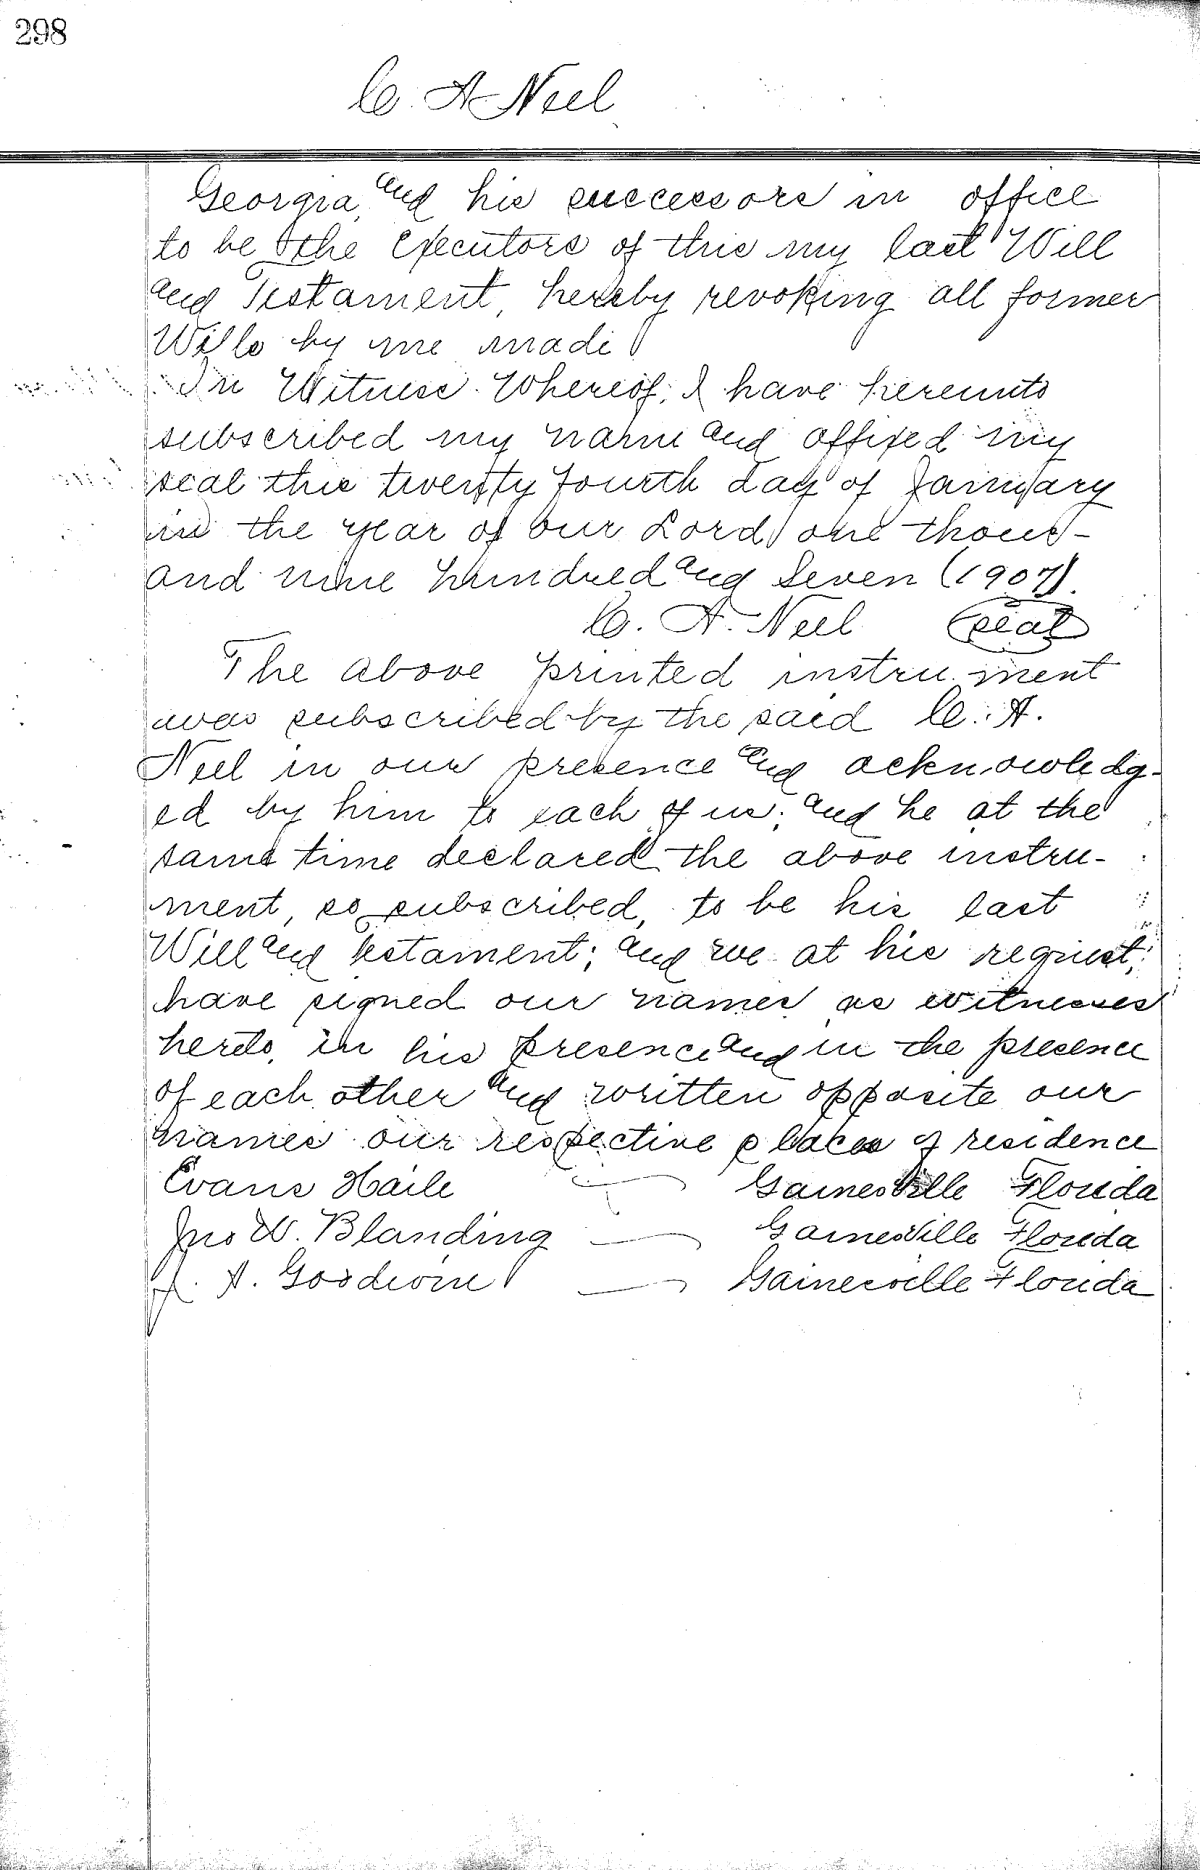 298
C. A Neel
Georgia, and his successors in office
to be the Executors of this my last Will
and Testament, hereby revoking all former
Wills by me made
In Witness Whereof, I have hereunto
subscribed my name and affixed my
seal this twenty fourth day of January
in the year of our Lord one thous-
and nine hundred and Seven (1907).
C. A. Neel (seal)
The above printed instrument
was subscribed by the said C. A.
Neel in our presence and acknowledg-
ed by him to each of us; and he at the
same time declared the above instru-
ment, so subscribed, to be his last
Will and testament; and we at his request,
have signed our names as witnesses
hereto, in his presence and in the presence
of each other and written opposite our
names our respective places of residence
Evans Haile — Gainesville Florida
Jno W. Blanding — Gainesville Florida
J. A. Goodwin — Gainesville Florida